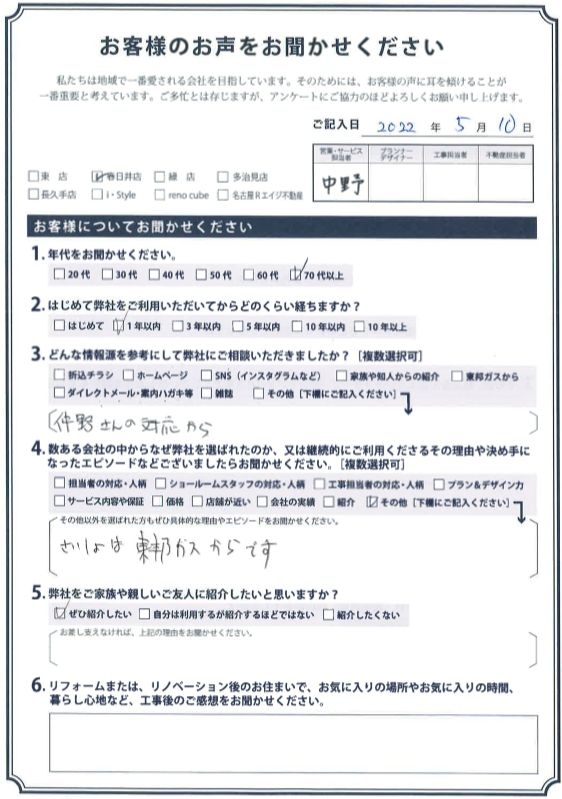 お客様のお声をお聞かせください
私たちは地域で一番愛される会社を目指しています。そのためには、お客様の声に耳を傾けることが
一番重要と考えています。ご多忙とは存じますが、アンケートにご協力のほどよろしくお願い申し上げます。
ご記入日 2022 年 5 月 10 日
営業・サービス担当者 プランナーデザイナー 工事担当者 不動産担当者
中野
□東 店 ☑春日井店 □緑 店 □多治見店
□長久手店 □i・Style □reno cube □名古屋Rエイジ不動産
お客様についてお聞かせください
1. 年代をお聞かせください。
□20代 □30代 □40代 □50代 □60代 ☑70代以上
2. はじめて弊社をご利用いただいてからどのくらい経ちますか？
□はじめて ☑1年以内 □3年以内 □5年以内 □10年以内 □10年以上
3. どんな情報源を参考にして弊社にご相談いただきましたか？［複数選択可］
□折込チラシ □ホームページ □SNS（インスタグラムなど） □家族や知人からの紹介 □東邦ガスから
□ダイレクトメール・案内ハガキ等 □雑誌 □その他［下欄にご記入ください］
仲野さんの対応から
4. 数ある会社の中からなぜ弊社を選ばれたのか、又は継続的にご利用くださるその理由や決め手に
なったエピソードなどございましたらお聞かせください。［複数選択可］
□担当者の対応・人柄 □ショールームスタッフの対応・人柄 □工事担当者の対応・人柄 □プラン&デザイン力
□サービス内容や保証 □価格 □店舗が近い □会社の実績 □紹介 ☑その他［下欄にご記入ください］
その他以外を選ばれた方もぜひ具体的な理由やエピソードをお聞かせください。
さいしょは東邦ガスからです
5. 弊社をご家族や親しいご友人に紹介したいと思いますか？
☑ぜひ紹介したい □自分は利用するが紹介するほどではない □紹介したくない
お差し支えなければ、上記の理由をお聞かせください。
6. リフォームまたは、リノベーション後のお住まいで、お気に入りの場所やお気に入りの時間、
暮らし心地など、工事後のご感想をお聞かせください。